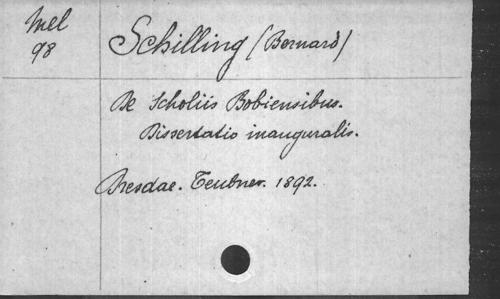 Mel
98
Schilling (Bernard)
De Scholiis Bobiensibus.
Dissertatio inauguralis.
Dresdae. Teubner. 1892.